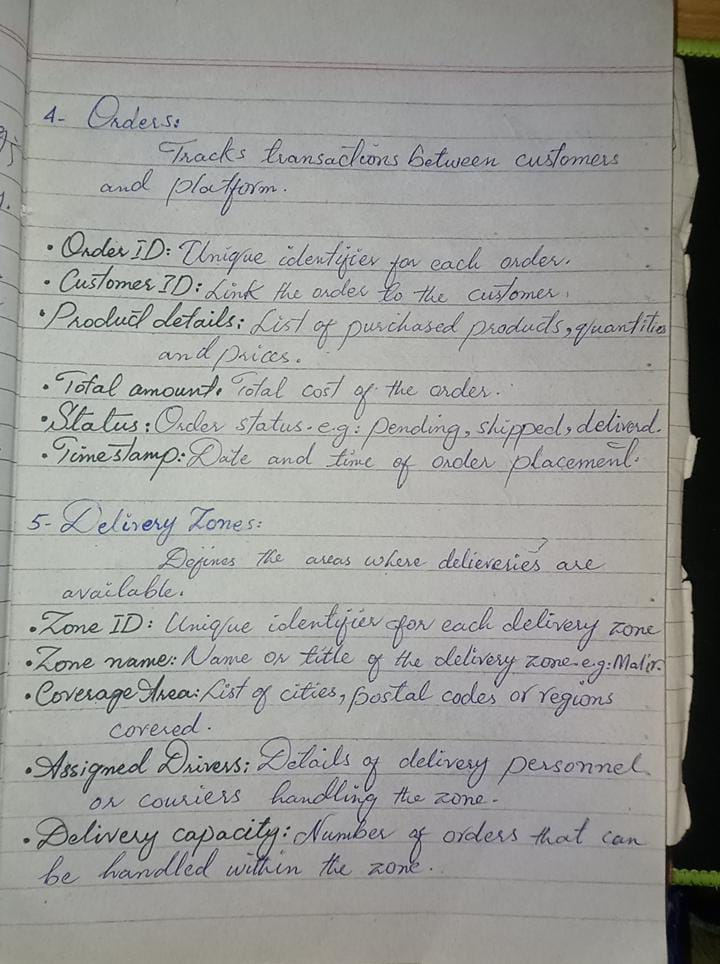 4- Orders:
Tracks transactions between customers
and platform.
• Order ID: Unique identifier for each order.
• Customer ID: Link the order to the customer.
• Product details: List of purchased products, quantities
and prices.
• Total amount: Total cost of the order.
• Status: Order status. e.g: pending, shipped, deliverd.
• Timestamp: Date and time of order placement.
5- Delivery Zones:
Defines the areas where delieveries are
available.
• Zone ID: Unique identifier for each delivery zone
• Zone name: Name or title of the delivery zone. eg: Malir.
• Coverage Area: List of cities, postal codes or regions
covered.
• Assigned Drivers: Details of delivery personnel
or couriers handling the zone.
• Delivery capacity: Number of orders that can
be handled within the zone.